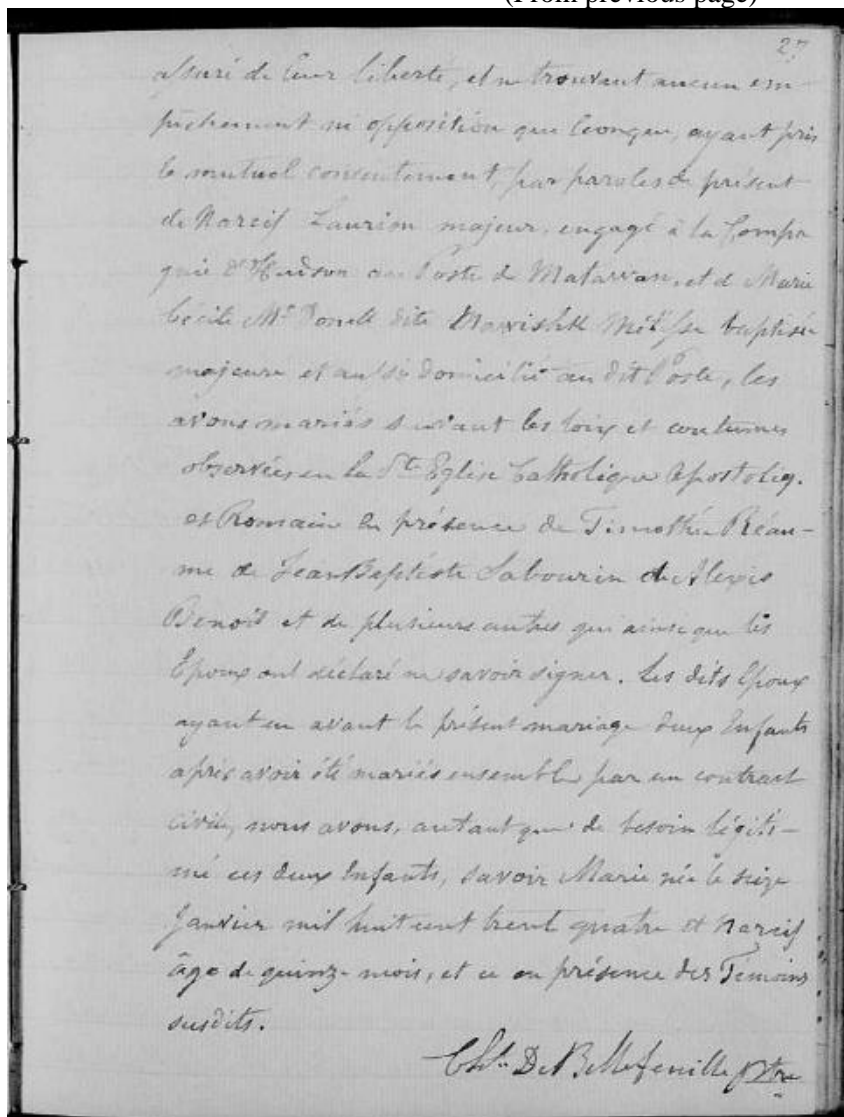 (From previous page)
27
assuré de leur liberté, et ne trouvant aucun em-
pêchement ni opposition que leonque, ayant pris
le mutuel consentement, par paroles de présent
de Narcif Laurion majeur, engagé à la Compa
gnie d'Hudson au Poste de Matawan, et de Marie
Cécile Mc Donell dite Métisse baptisée
majeure et aussi domicilié au dit Poste, les
avons mariés suivant les loix et coutumes
observées en la Ste Eglise Catholique Apostoliq.
et Romain en présence de Timothée Réau-
me de Jean Baptiste Sabourin de Alexis
Benoit et de plusieurs autres qui ainsi que les
Epoux ont déclaré ne savoir signer. Les dits Epoux
ayant eu avant le présent mariage deux Enfants
après avoir été mariés ensemble par un contract
civile, nous avons, autant que de besoin légiti-
mé ces deux Enfants, savoir Marie née le seize
Janvier mil huit cent trent quatre et Narcif
âge de quinz-mois, et ce en présence des Temoins
susdits.
De Bellefeuille ptre